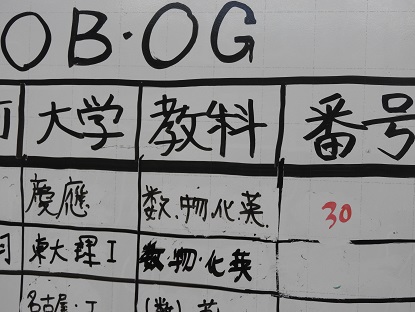 OB・OG
大学 教科 番号
慶應 数.物.化.英. 30
東大理I 数.物.化英
名古屋・工 (数) 英